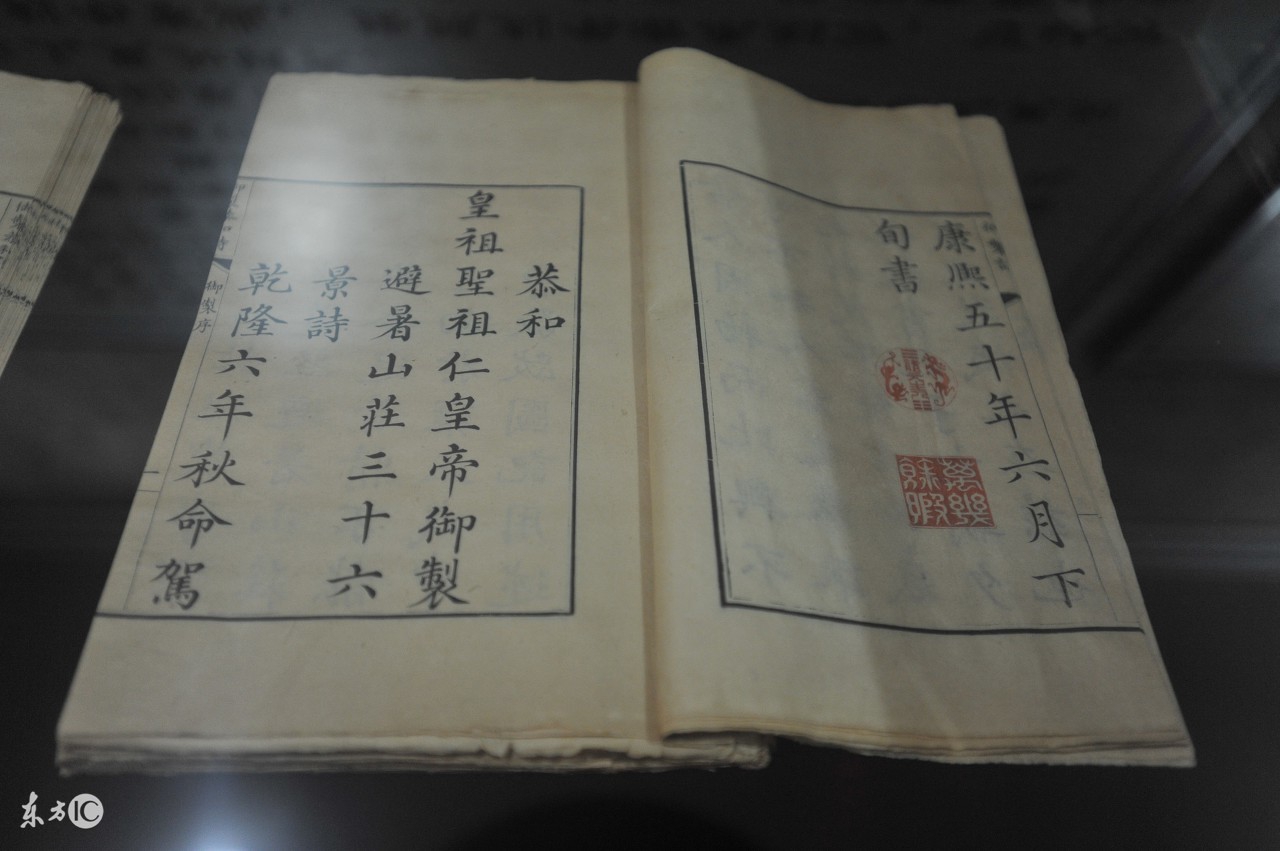 康熙五十年六月下
旬書
萬幾
餘暇
恭和
皇祖聖祖仁皇帝御製
避暑山莊三十六
景詩
乾隆六年秋命駕
御製序
东方IC